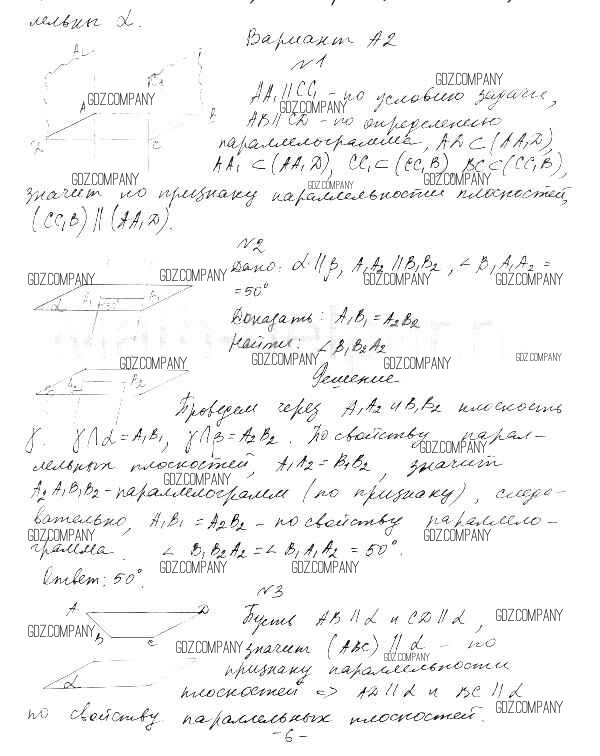 лельны α.
Вариант А2
№1
AA₁ ∥ CC₁ - по условию задачи,
AB ∥ CD - по определению
параллелограмма, AD ⊂ (AA₁D),
AA₁ ⊂ (AA₁D), CC₁ ⊂ (CC₁B) BC ⊂ (CC₁B),
значит по признаку параллельности плоскостей,
(CC₁B) ∥ (AA₁D).
№2
Дано: α ∥ β, A₁A₂ ∥ B₁B₂, ∠ B₁A₁A₂ =
= 50°
Доказать: A₁B₁ = A₂B₂
Найти: ∠ B₁B₂A₂
Решение
Проведем через A₁A₂ и B₁B₂ плоскость
γ. γ ∩ α = A₁B₁, γ ∩ β = A₂B₂. По свойству парал-
лельных плоскостей, A₁A₂ = B₁B₂, значит
A₂A₁B₁B₂ - параллелограмм (по признаку), следо-
вательно, A₁B₁ = A₂B₂ - по свойству параллело-
грамма. ∠ B₁B₂A₂ = ∠ B₁A₁A₂ = 50°.
Ответ: 50°.
№3
A D
B C
α
Пусть AB ∥ α и CD ∥ α,
значит (ABC) ∥ α - по
признаку параллельности
плоскостей => AD ∥ α и BC ∥ α
по свойству параллельных плоскостей.
- 6 -
GDZ.COMPANY
GDZ.COMPANY
GDZ.COMPANY
GDZ.COMPANY
GDZ.COMPANY
GDZ.COMPANY
GDZ.COMPANY
GDZ.COMPANY
GDZ.COMPANY
GDZ.COMPANY
GDZ.COMPANY
GDZ.COMPANY
GDZ.COMPANY
GDZ.COMPANY
GDZ.COMPANY
GDZ.COMPANY
GDZ.COMPANY
GDZ.COMPANY
GDZ.COMPANY
GDZ.COMPANY
GDZ.COMPANY
GDZ.COMPANY
GDZ.COMPANY
GDZ.COMPANY
GDZ.COMPANY